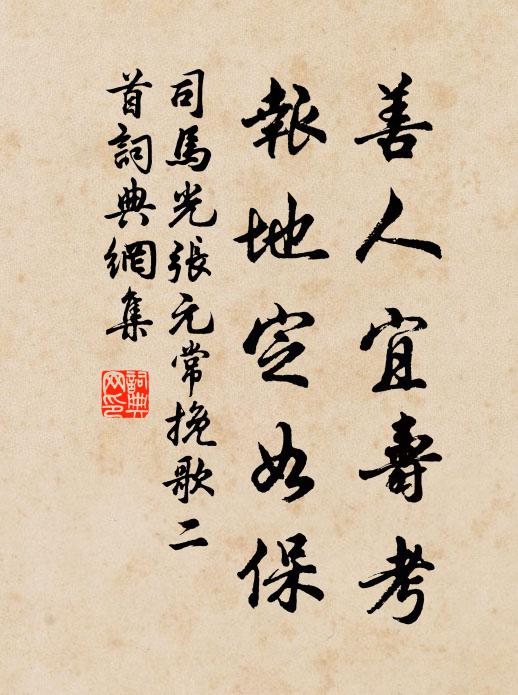 善人宜壽考
報地定如保
司馬光張元常挽歌二
首詞典網集
詞典
网印